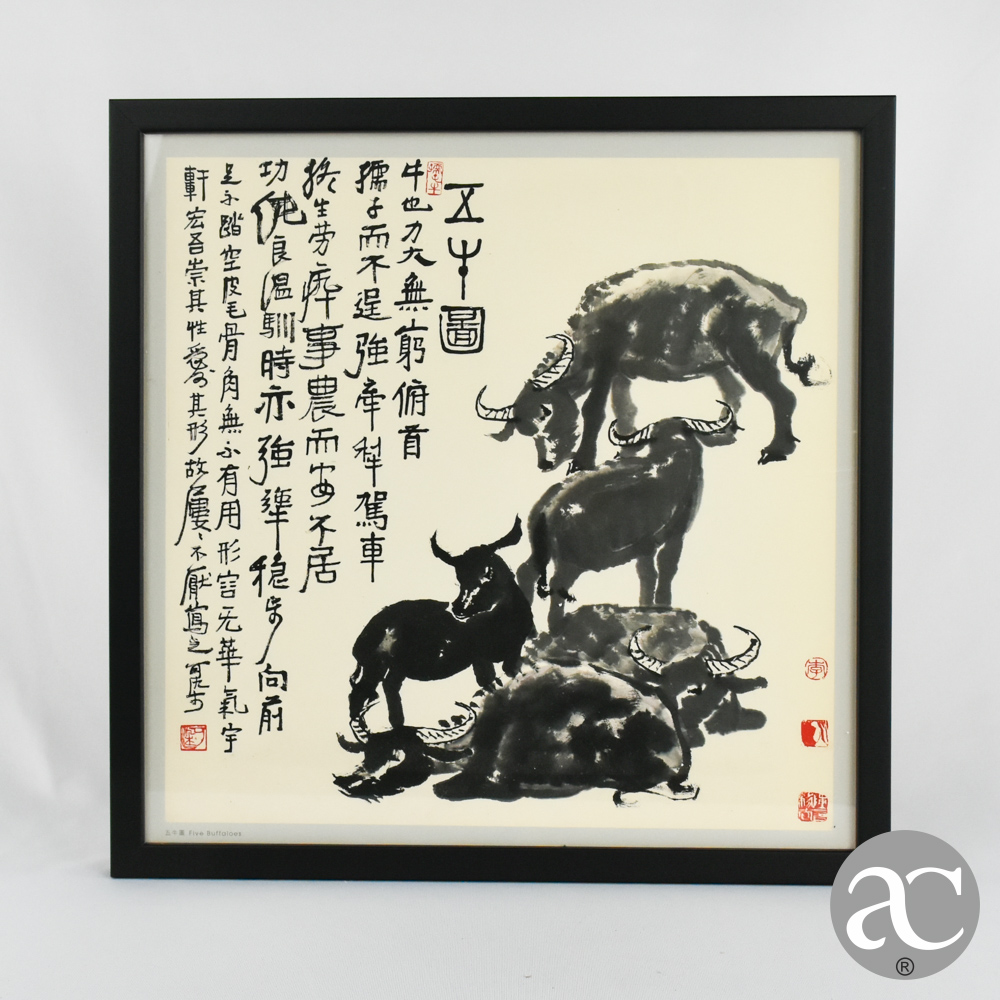 五牛圖
牛也力大無窮俯首
孺子而不逞強牽犁駕車
終生勞瘁事農而安不居
功純良溫馴時亦強犟穩步向前
足不踏空皮毛骨角無不有用形容无華氣宇
軒宏吾崇其性愛其形故屢〻不厭寫之可染
五牛圖 Five Buffaloes
ac
®